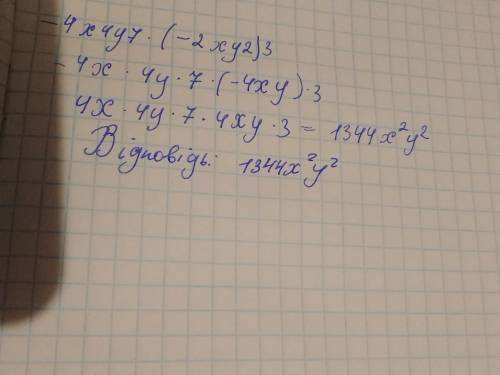 - 4x4y7 · (-2xy2)3
- 4x · 4y · 7 · (-4xy) · 3
4x · 4y · 7 · 4xy · 3 = 1344x²y²
Відповідь: 1344x²y²